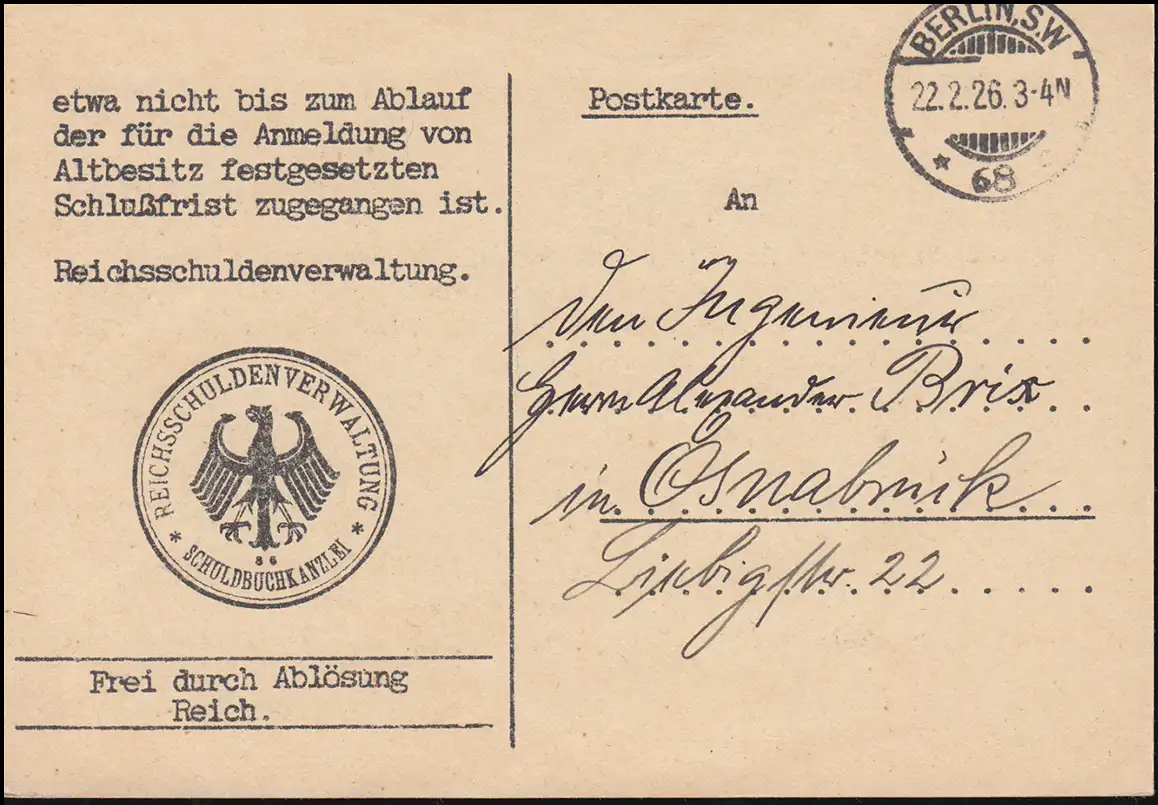 etwa nicht bis zum Ablauf
der für die Anmeldung von
Altbesitz festgesetzten
Schlußfrist zugegangen ist.
Reichsschuldenverwaltung.
* REICHSSCHULDENVERWALTUNG *
86
SCHULDBUCHKANZLEI
Frei durch Ablösung
Reich.
BERLIN.S.W
22.2.26.3-4N
* 68
Postkarte.
An
den Ingenieur
Herrn Alexander Brix
in Osnabrück
Liebigstr. 22